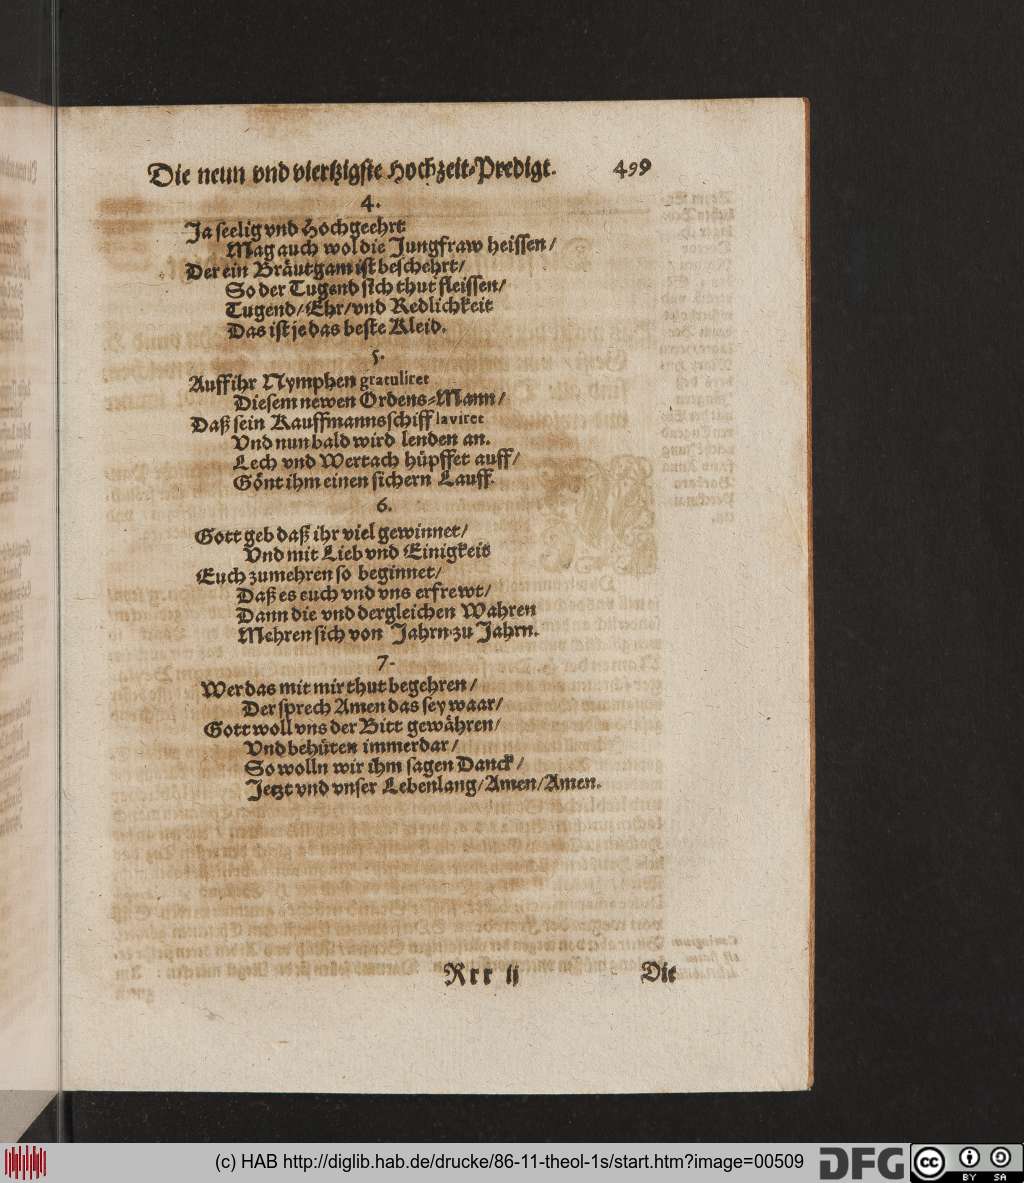 Die neun vnd viertzigste Hochzeit-Predigt. 499
4.
Ja seelig vnd Hochgeehrt
Mag auch wol die Jungfraw heissen/
Der ein Bräutgam ist beschehrt/
So der Tugend sich thut fleissen/
Tugend/Ehr/vnd Redlichkeit
Das ist je das beste Kleid.
5.
Auff ihr Nymphen gratuliret
Diesem newen Ordens-Mann/
Daß sein Kauffmannsschiff laviret
Vnd nun bald wird lenden an.
Lech vnd Wertach hüpffet auff/
Gönt ihm einen sichern Lauff.
6.
Gott geb daß ihr viel gewinnet/
Vnd mit Lieb vnd Einigkeit
Euch zumehren so beginnet/
Daß es euch vnd vns erfrewt/
Dann die vnd dergleichen Wahren
Mehren sich von Jahrn zu Jahrn.
7.
Wer das mit mir thut begehren/
Der sprech Amen das sey waar/
Gott woll vns der Bitt gewähren/
Vnd behüten immerdar/
So wolln wir ihm sagen Danck/
Jetzt vnd vnser Lebenlang/Amen/Amen.
Rrr ij Die
(c) HAB http://diglib.hab.de/drucke/86-11-theol-1s/start.htm?image=00509 DFG cc BY SA